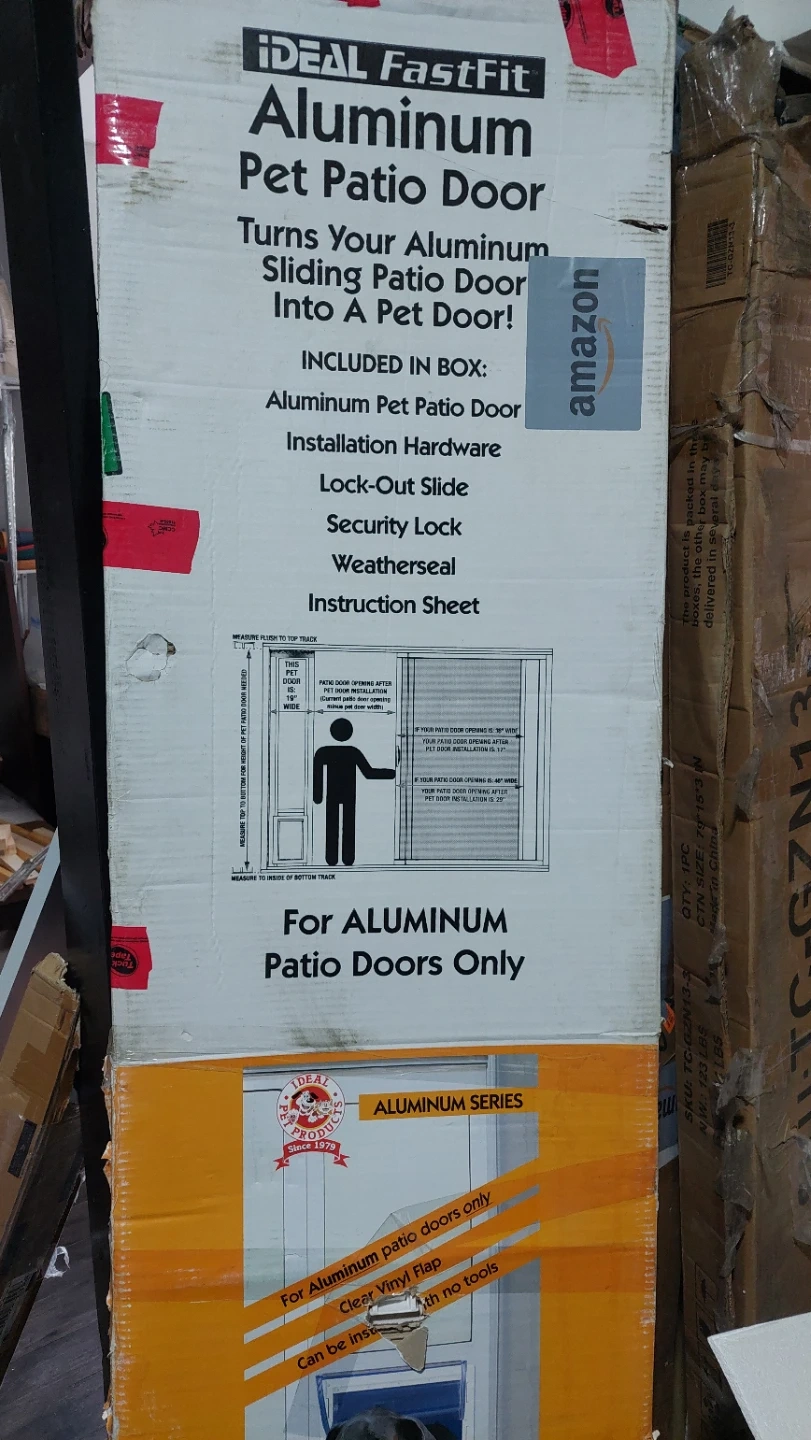 iDEAL FastFit
Aluminum
Pet Patio Door
Turns Your Aluminum
Sliding Patio Door
Into A Pet Door!
amazon
INCLUDED IN BOX:
Aluminum Pet Patio Door
Installation Hardware
Lock-Out Slide
Security Lock
Weatherseal
Instruction Sheet
MEASURE FLUSH TO TOP TRACK
MEASURE TOP TO BOTTOM FOR HEIGHT OF PET PATIO DOOR NEEDED
THIS
PET
DOOR
IS:
19"
WIDE
PATIO DOOR OPENING AFTER
PET DOOR INSTALLATION
(Current patio door opening
minus pet door width)
IF YOUR PATIO DOOR OPENING IS: 36" WIDE
YOUR PATIO DOOR OPENING AFTER
PET DOOR INSTALLATION IS: 17"
IF YOUR PATIO DOOR OPENING IS: 48" WIDE
YOUR PATIO DOOR OPENING AFTER
PET DOOR INSTALLATION IS: 29"
MEASURE TO INSIDE OF BOTTOM TRACK
For ALUMINUM
Patio Doors Only
IDEAL
PET PRODUCTS
Since 1979
ALUMINUM SERIES
For Aluminum patio doors only
Clear Vinyl Flap
Can be inst th no tools
TC-GZN13-3
The product is packed in
boxes, the other box may b
delivered in several
QTY: 1PC
Made in China